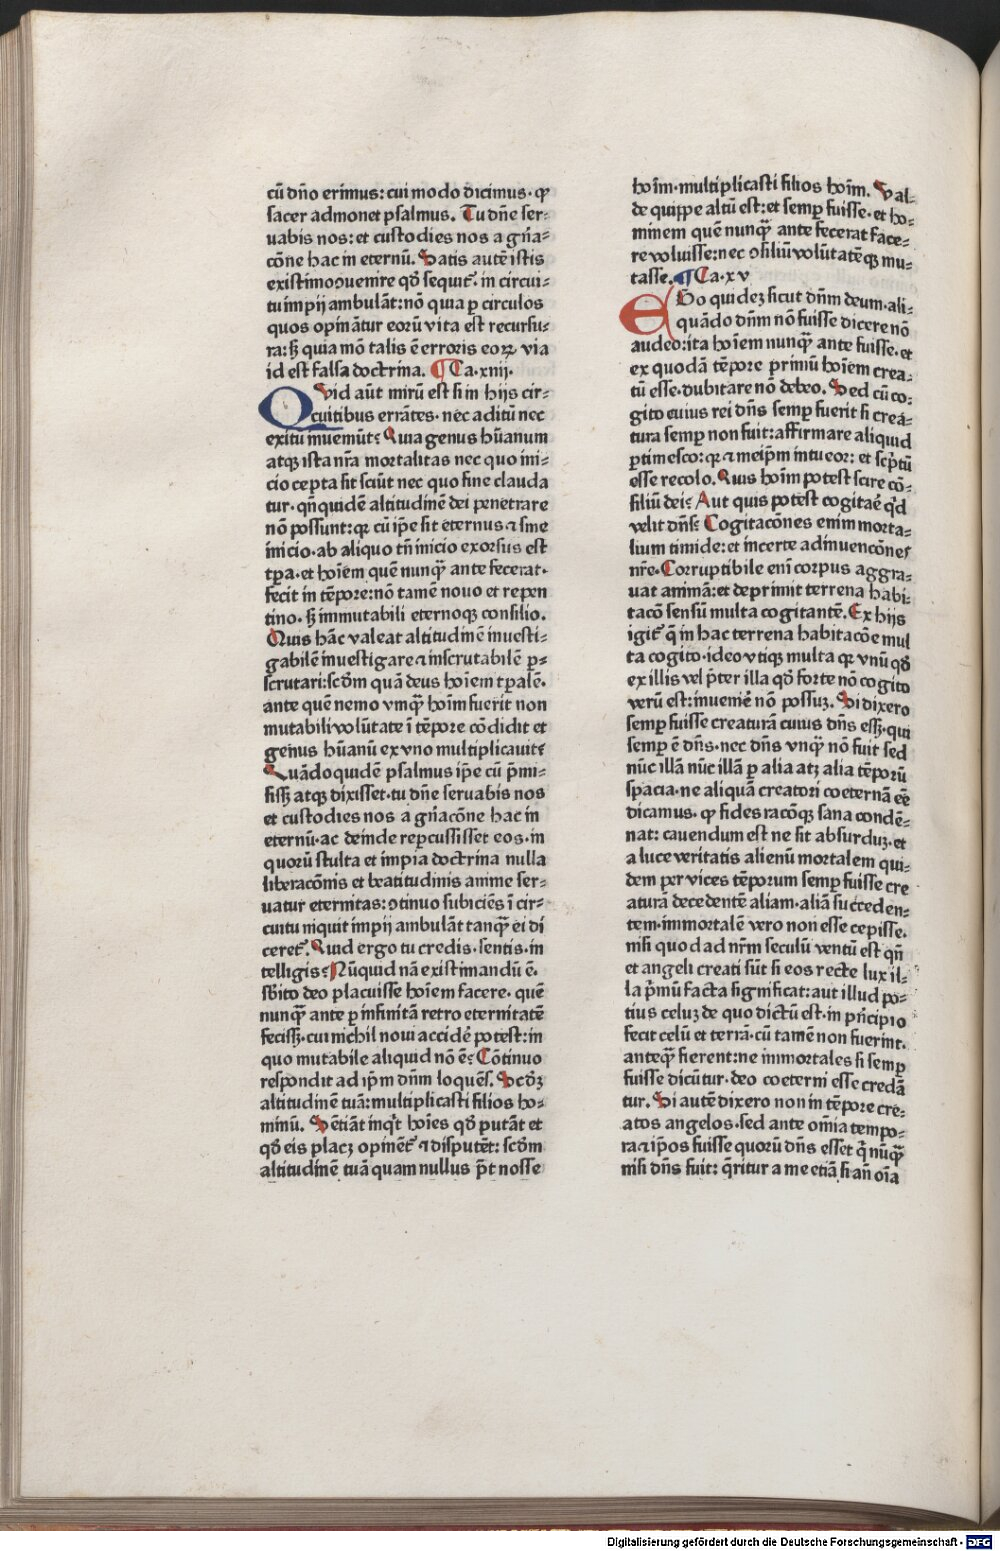 cū dn̄o erimus: cui modo dicimus· ꝙ
sacer admonet psalmus. Tu dn̄e ser⸗
uabis nos: et custodies nos a gn̄a⸗
cōne hac in eternū. Satis autē istis
existimo ↄuenire qd̓ sequit᷑· in circui⸗
tu impij ambulāt: nō quia ꝑ circulos
quos opinātur eorū vita est recursu⸗
ra: sꝫ quia mō talis ē erroris eoꝝ via
id est falsa doctrina. ¶ Ca·xiiij·
Quid aūt mirū est si in hijs cir⸗
cuitibus errātes· nec aditū nec
exitū inueniūt? Quia genus hūanum
atqꝫ ista nr̄a mortalitas nec quo ini⸗
cio cepta sit sciūt nec quo fine clauda
tur· qn̄quidē altitudinē dei penetrare
nō possunt: qꝛ cū ip̄e sit eternus ⁊ sine
inicio· ab aliquo tn̄ inicio exorsus est
tꝑa· et hoīem quē nunqͣ ante fecerat·
fecit in tēpore: nō tamē nouo et repen
tino· sꝫ immutabili eternoqꝫ consilio.
Quis hāc valeat altitudinē inuesti⸗
gabilē inuestigare ⁊ inscrutabilē ꝑ⸗
scrutari: scd̓m quā deus hoīem tꝑalē·
ante quē nemo vnqͣ hoīm fuerit non
mutabili volūtate ī tēpore cōdidit et
genus hūanū ex vno multiplicauit?
Quādoquidē psalmus ip̄e cū p̄mi⸗
sissꝫ atqꝫ dixisset· tu dn̄e seruabis nos
et custodies nos a gn̄acōne hac in
eternū· ac deinde repercussisset eos· in
quorū stulta et impia doctrina nulla
liberacōnis et beatitudinis anime ser⸗
uatur eternitas: ↄtinuo subiciēs ī cir⸗
cuitu niquit impij ambulāt tanqͣ ei di
ceret᷑. Quid ergo tu credis· sentis· in
telligis? Nūquid nā existimandū ē·
sb̓ito deo placuisse hoīem facere· quē
nunqͣ ante ꝑ infinitā retro eternitatē
fecissꝫ· cui nichil noui accidē potest: in
quo mutabile aliquid nō ē? Cōtinuo
respondit ad ip̄m dn̄m loquēs. Scd̓ꝫ
altitudinē tuā: multiplicasti filios ho⸗
minū. Sētiāt inqͥt hoīes qd̓ putāt et
qd̓ eis placꝫ opinēt᷑ ⁊ disputēt: scd̓m
altitudinē tuā quam nullus p̄t nosse
hoīm· multiplicasti filios hoīm. Val⸗
de quippe altū est: et semꝑ fuisse· et ho⸗
minem quē nunqͣ ante fecerat face⸗
re voluisse: nec ↄsiliū volūtatēqꝫ mu⸗
tasse. ¶ Ca·xv
Ego quidez sicut dn̄m deum· ali⸗
quādo dn̄m nō fuisse dicere nō
audeo: ita hoīem nunqͣ ante fuisse· et
ex quodā tēpore primū hoīem crea⸗
tū esse· dubitare nō debeo. Sed cū co⸗
gito cuius rei dn̄s semꝑ fuerit si crea⸗
tura semꝑ non fuit: affirmare aliquid
ꝑtimesco: qꝛ ⁊ meip̄m intueor: et scp̄tū
esse recolo. Quis hoīm potest scire cō⸗
siliū dei? Aut quis potest cogitaē qͥd
velit dn̄s? Cogitacōnes enim morta⸗
lium timide: et incerte adinuencōnes
nr̄e· Corruptibile enī corpus aggra⸗
uat animā: et deprimit terrena habi⸗
tacō sensū multa cogitantē. Ex hijs
igit᷑ q̄ in hac terrena habitacōe mul
ta cogito· ideo vtiqꝫ multa qꝛ vnū qd̓
ex illis vel p̄ter illa qd̓ forte nō cogito
verū est: inuenīē nō possuꝫ. Si dixero
semꝑ fuisse creaturā cuius dn̄s essꝫ· qui
semꝑ ē dn̄s· nec dn̄s vnqͣ nō fuit sed
nūc illā nūc illā ꝑ alia atꝫ alia tēporū
spacia· ne aliquā creatori coeternā eē
dicamus· ꝙ fides racōqꝫ sana condē⸗
nat: cauendum est ne sit absurduꝫ· et
a luce veritatis alienū mortalem qui⸗
dem per vices tēporum semꝑ fuisse cre
aturā decedentē aliam· aliā succeden⸗
tem· immortalē vero non esse cepisse·
nisi quod ad nr̄m seculū ventū est qn̄
et angeli creati sūt si eos recte lux il⸗
la p̄mū facta significat: aut illud po⸗
tius celuꝫ de quo dictū est· in pn̄cipio
fecit celū et terrā· cū tamē non fuerint·
anteqͣ fierent: ne immortales si semꝑ
fuisse dicūtur· deo coeterni esse credā
tur. Si autē dixero non in tēpore cre⸗
atos angelos· sed ante om̄ia tempo⸗
ra ⁊ ip̄os fuisse quorū dn̄s esset qͥ nūqͣ
nisi dn̄s fuit: q̄ritur a me etiā si an̄ oīa
Digitalisierung gefördert durch die Deutsche Forschungsgemeinschaft - DFG